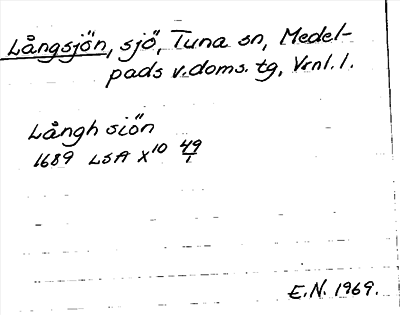 Långsjön, sjö, Tuna sn, Medel-
pads v.doms. tg, Vrnl. l.
Långh siön
1689 LSA X10 49/1
E.N. 1969.